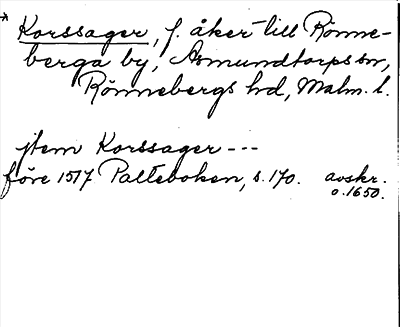 * Korssager, f. åker till Rönne-
berga by, Asmundtorps sn,
Rönnebergs hd, Malm. l.
jtem Korssager ---
före 1517 Palteboken, s. 170. avskr.
o. 1650.